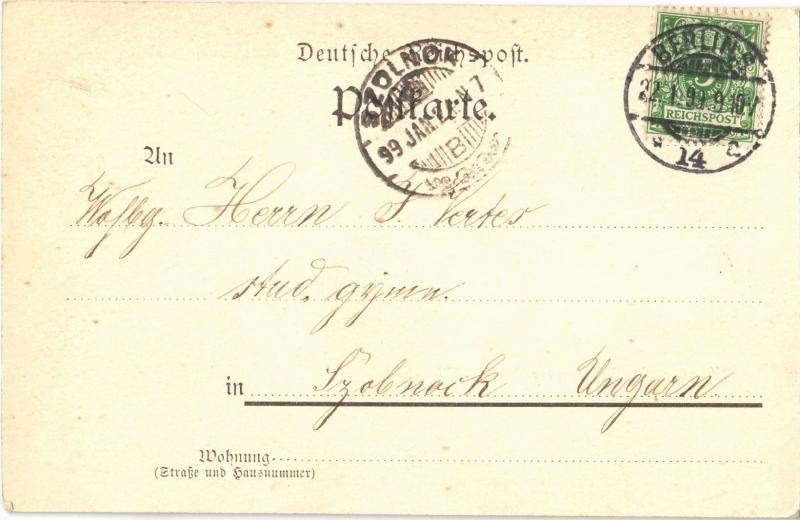 Deutsche Reichspost.
Postkarte.
SZOLNOK
99 JAN. N 7
B
BERLIN
22.1.99.9-10V
14
REICHSPOST
An
Herrn J. Vertes
stud. gymn.
in Szobnock Ungarn
Wohnung
(Straße und Hausnummer)